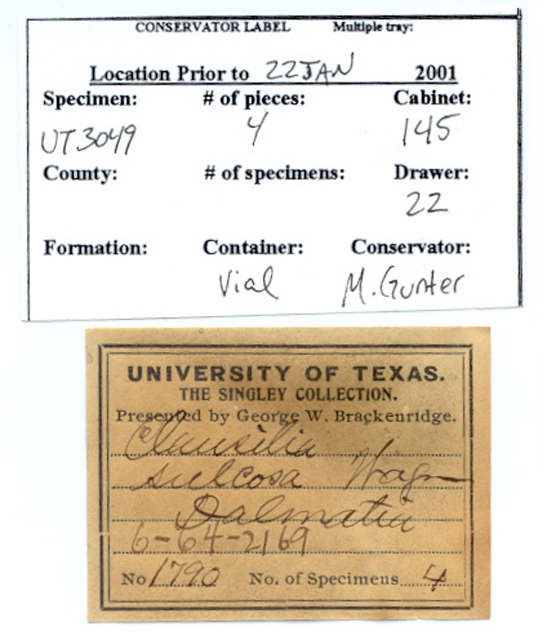 CONSERVATOR LABEL Multiple tray:
Location Prior to 22JAN 2001
Specimen: # of pieces: Cabinet:
UT3049 4 145
County: # of specimens: Drawer:
22
Formation: Container: Conservator:
Vial M. Gunter
UNIVERSITY OF TEXAS.
THE SINGLEY COLLECTION.
Presented by George W. Brackenridge.
Clausilia
sulcosa Wagn
Dalmatia
6-64-2169
No 1790 No. of Specimens 4